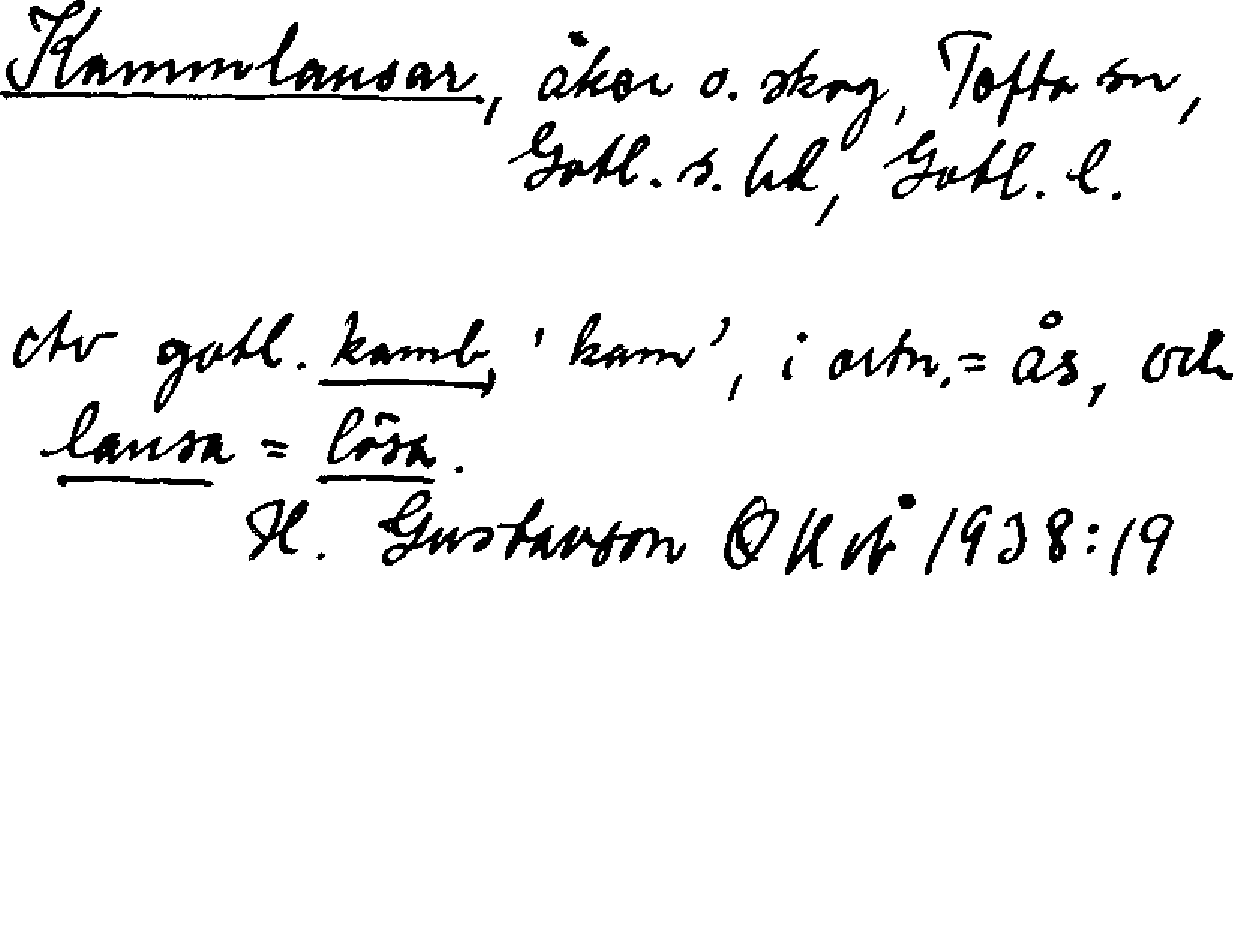 Kammlausar, åker o. skog, Tofta sn,
Gotl. s. hd, Gotl. l.
Av gotl. kamb, 'kam', i ortn. = ås, och
lausa = lösa.
H. Gustavson OKvå 1938:19